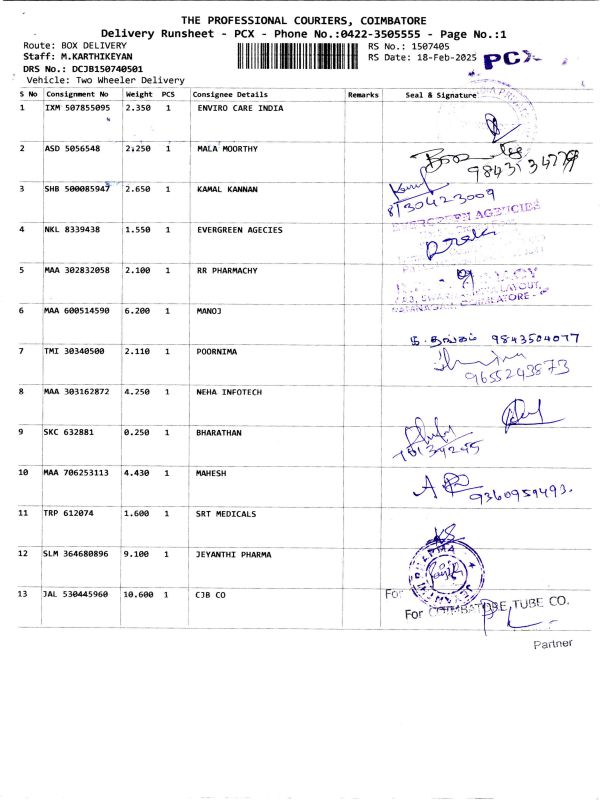 THE PROFESSIONAL COURIERS, COIMBATORE
Delivery Runsheet - PCX - Phone No.:0422-3505555 - Page No.:1
Route: BOX DELIVERY
RS No.: 1507405
PCX
Staff: M.KARTHIKEYAN
RS Date: 18-Feb-2025
DRS No.: DCJB150740501
Vehicle: Two Wheeler Delivery
S No Consignment No Weight PCS Consignee Details Remarks Seal & Signature
1 IXM 507855095 2.350 1 ENVIRO CARE INDIA
2 ASD 5056548 2.250 1 MALA MOORTHY
3 SHB 500085947 2.650 1 KAMAL KANNAN
8130423009
EVERGREEN AGENCIES
4 NKL 8339438 1.550 1 EVERGREEN AGECIES
5 MAA 302832058 2.100 1 RR PHARMACHY
LAYOUT,
COIMBATORE -
6 MAA 600514590 6.200 1 MANOJ
9843504077
7 TMI 30340500 2.110 1 POORNIMA
9655243873
8 MAA 303162872 4.250 1 NEHA INFOTECH
9 SKC 632881 0.250 1 BHARATHAN
10 MAA 706253113 4.430 1 MAHESH
9360959493.
11 TRP 612074 1.600 1 SRT MEDICALS
12 SLM 364680896 9.100 1 JEYANTHI PHARMA
13 JAL 530445960 10.600 1 CJB CO
For
For COIMBATORE TUBE CO.
Partner